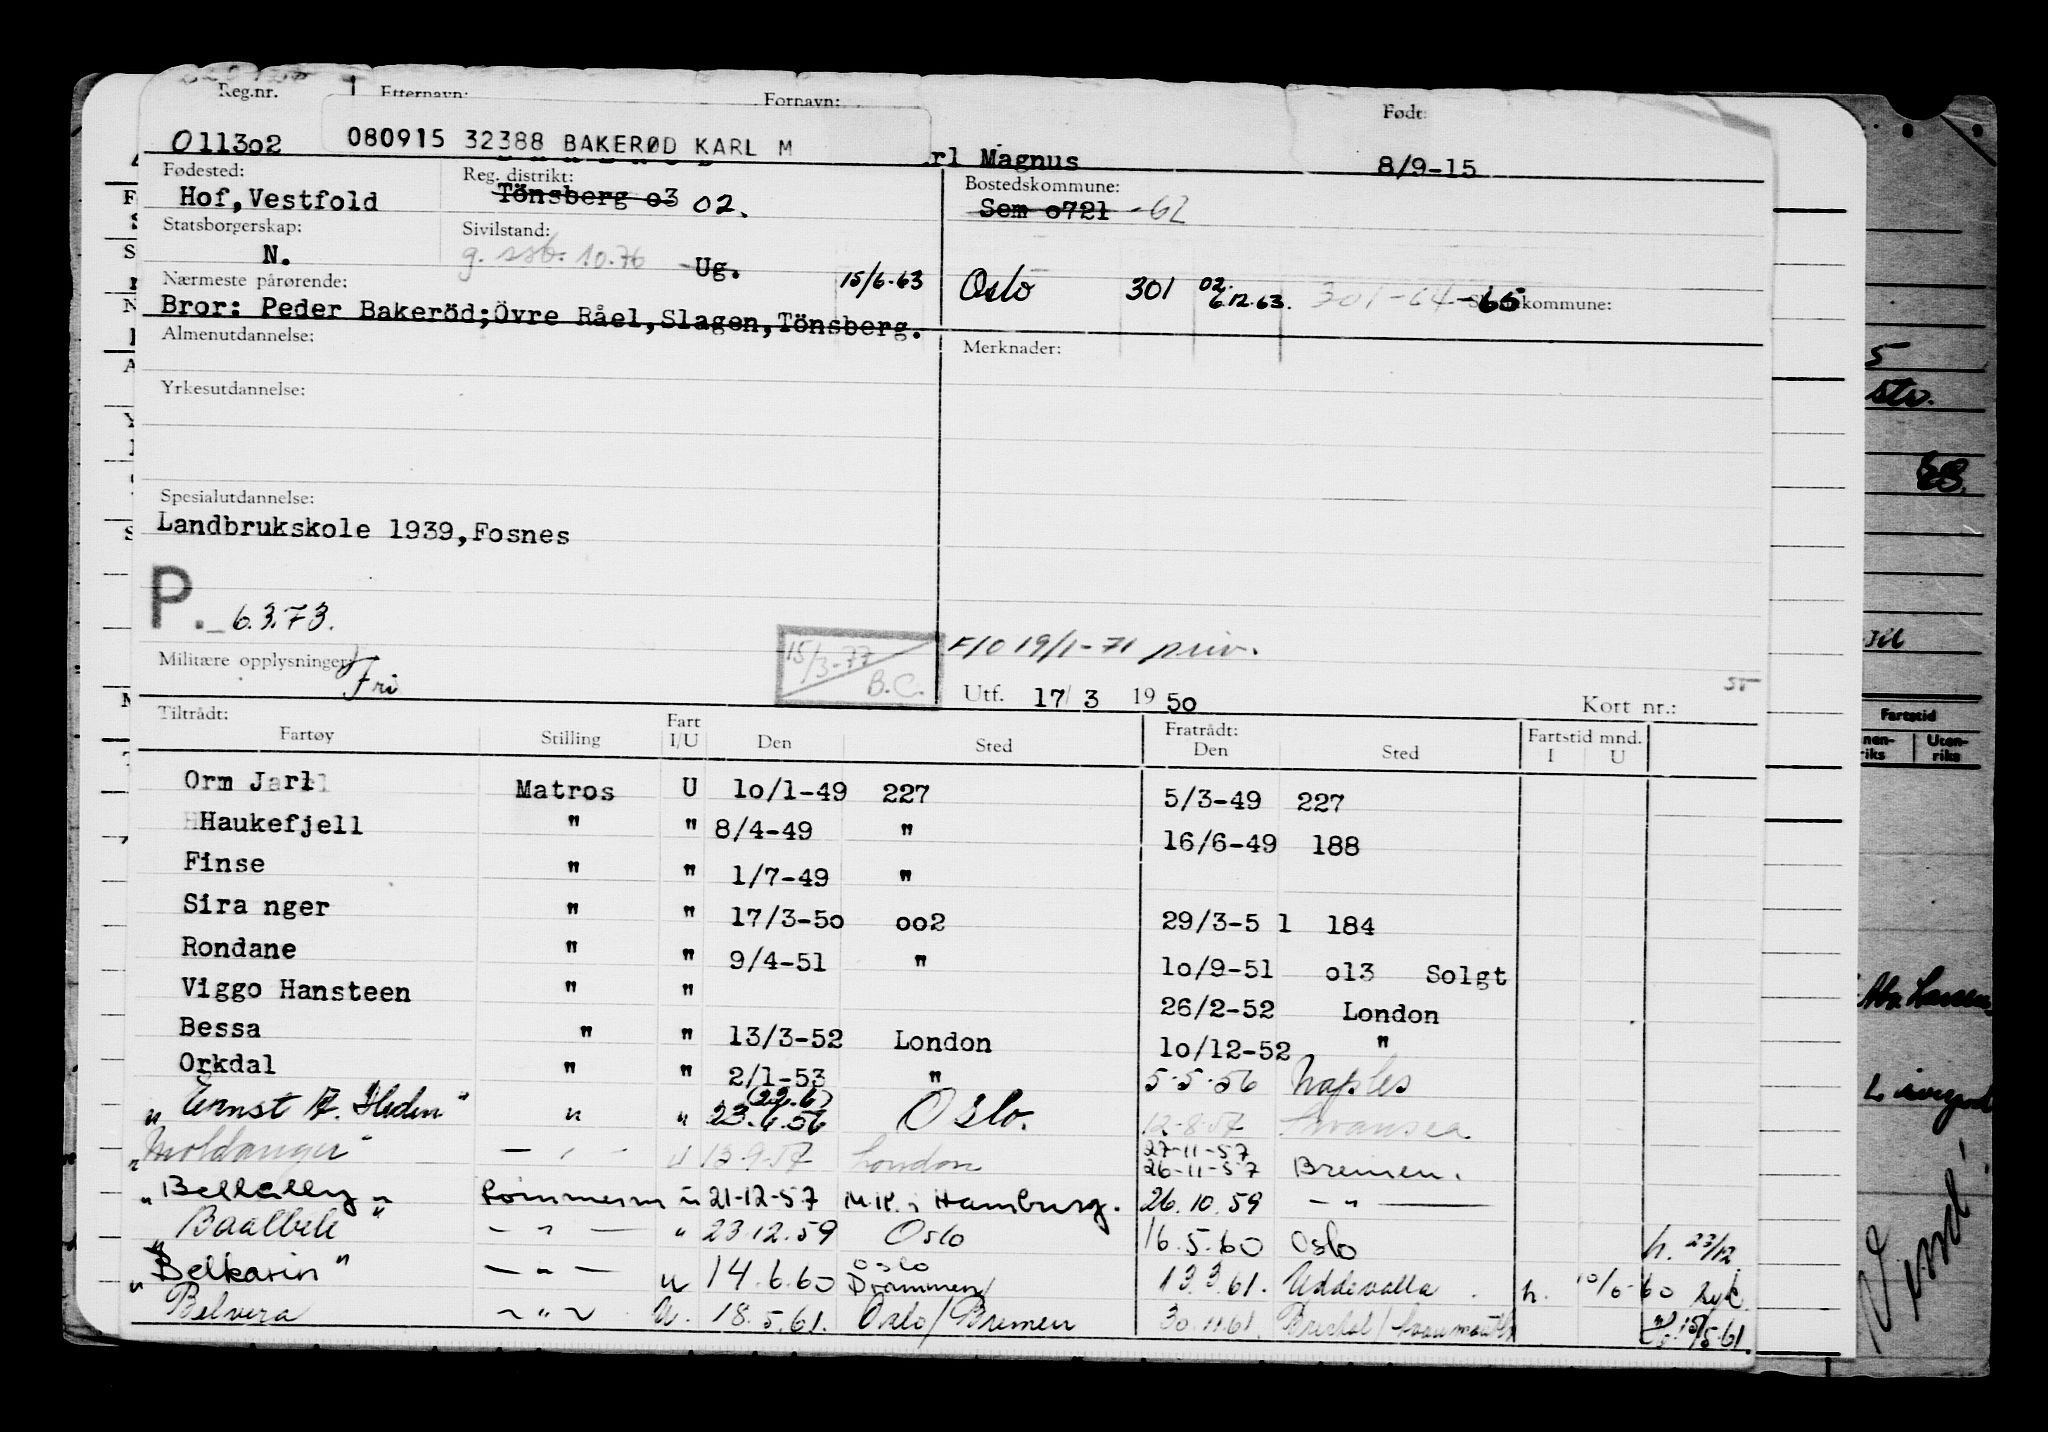 Reg.nr. Etternavn: Fornavn: Født:
011302 080915 32388 BAKERØD KARL M rl Magnus 8/9-15
Fødested: Reg. distrikt: Bostedskommune:
Hof,Vestfold Tönsberg o3 02. Sem o721 -62
Statsborgerskap: Sivilstand:
N. g. 10.76 -Ug.
Nærmeste pårørende: 15/6-63 Oslo 301 02. 6.12.63. 301-64-65 kommune:
Bror: Peder Bakeröd;Övre Råel,Slagen,Tönsberg.
Almenutdannelse: Merknader:
Yrkesutdannelse:
Spesialutdannelse:
Landbrukskole 1939,Fosnes
P. 6.3.73.
15/3-77 B.C. F/O 19/1-71 priv.
Militære opplysninger: Fri Utf. 17/3 1950 Kort nr.:
Tiltrådt: Fart Fratrådt: Fartstid mnd.
Fartøy Stilling I/U Den Sted Den Sted I U
Orm Jarl Matros U 1o/1-49 227 5/3-49 227
Haukefjell " " 8/4-49 " 16/6-49 188
Finse " " 1/7-49 "
Sira nger " " 17/3-5o oo2 29/3-5 1 184
Rondane " " 9/4-51 " 1o/9-51 o13 Solgt
Viggo Hansteen " " 26/2-52 London
Bessa " " 13/3-52 London 1o/12-52 "
Orkdal " " 2/1-53 " 5.5.56 Naples
(22.6)
" Ernst " " " 23.6.56 Oslo. 12-8-57 Swansea
27-11-57
" Moldanger " - " - U 13-9-57 London 26-11-57 Bremen.
" Bellally " Tømmerm U 21-12-57 Hamburg. 26.10.59 - " -
" Baalbek - " - " 23.12.59 Oslo 16.5.60 Oslo h. 23/12
" Belkarin " - " - u 14.6.60 Oslo Drammen 13.3.61. Uddevalla h. 10/6-60
Belvera - " - U. 18.5.61. Oslo/Bremen 30.11.61 15/5.61.
Fartstid
Vund!